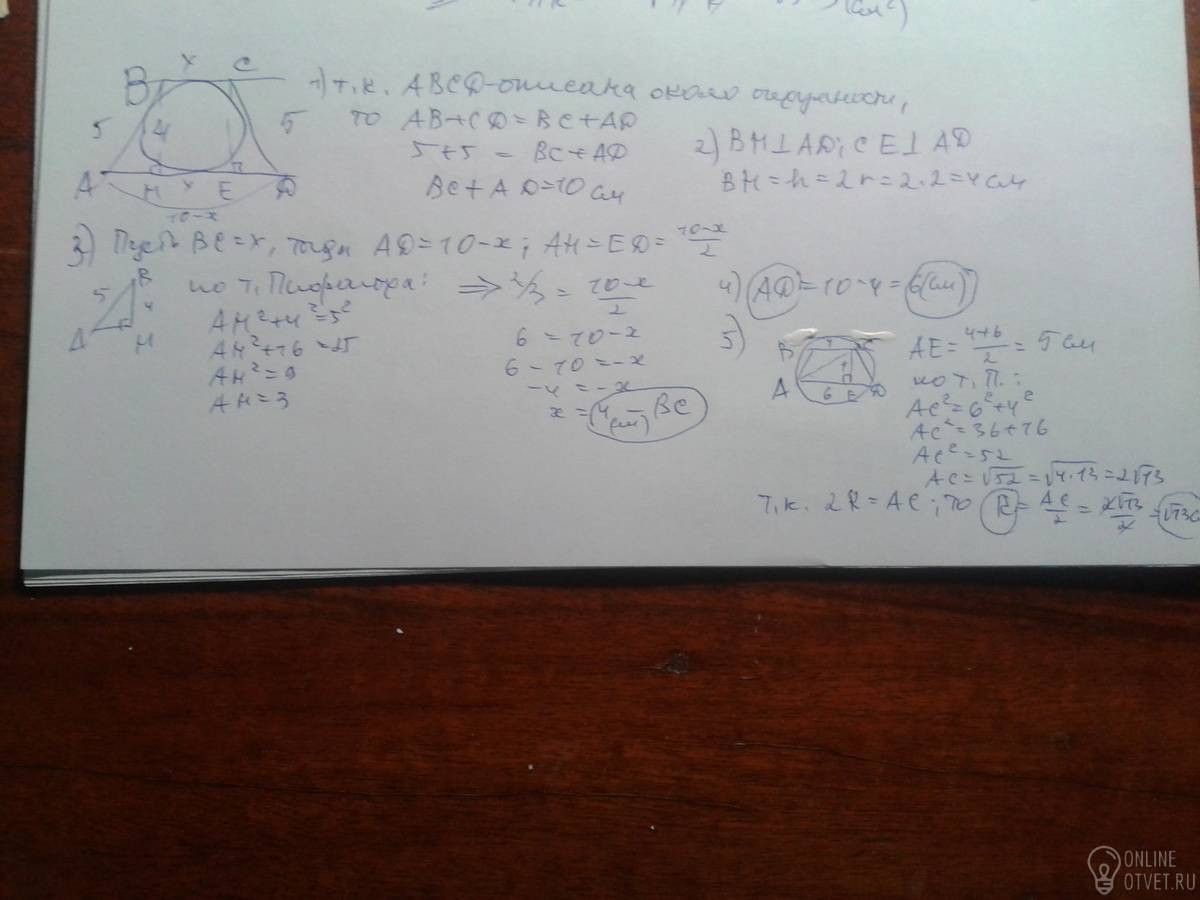 (см²)
B x C
5 4 5
A H x E D
10-x
1) т.к. ABCD-описана около окружности,
то AB+CD=BC+AD
5+5 = BC+AD
BC+AD=10 см
2) BH⊥AD; CE⊥AD
BH=h=2r=2·2=4см
3) Пусть BC=x, тогда AD=10-x; AH=ED=10-x/2
B
5 4
A H
по т. Пифагора:
AH²+4²=5²
AH²+16=25
AH²=9
AH=3
⇒ 3 = 10-x/2
6=10-x
6-10=-x
-4=-x
x=4(см)-BC
4) AD=10-4=6(см)
5)
B C
A 6 E D
AE=4+6/2=5см
по т. П.:
AC²=6²+4²
AC²=36+16
AC²=52
AC=√52=√4·13=2√13
т.к. 2R=AC; то R=AC/2=2√13/2=√13с
ONLINE
OTVET.RU